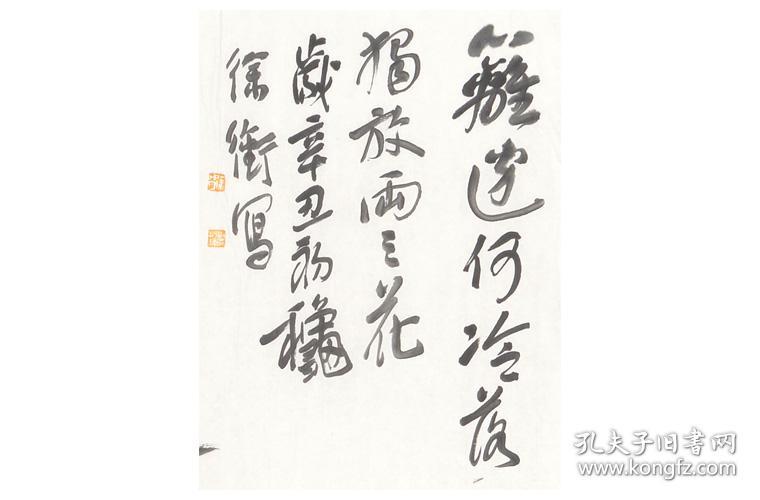 籬邊何冷落
獨放兩三花
歲辛丑初龝
徐衡寫
孔夫子旧书网
www.kongfz.com